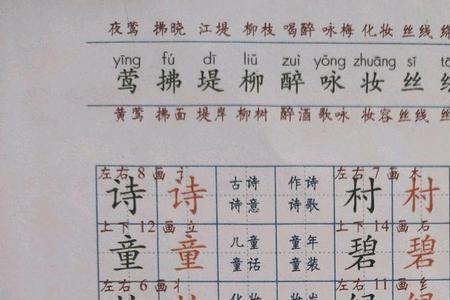 夜莺 拂晓 江堤 柳枝 喝醉 咏梅 化妆 丝线
yīng fú dī liǔ zuì yǒng zhuāng sī
莺 拂 堤 柳 醉 咏 妆 丝
黄莺 拂面 堤岸 柳树 醉酒 歌咏 妆容 丝线
左右 8 画 讠 左右 7 画 木
诗 诗 古诗 作诗 村 村
诗意 诗歌
上下 12 画 立 上下 14 画 石
童 童 儿童 童年 碧 碧
童话 童装
左右 6 画 丬 左右 11 画 纟
化妆